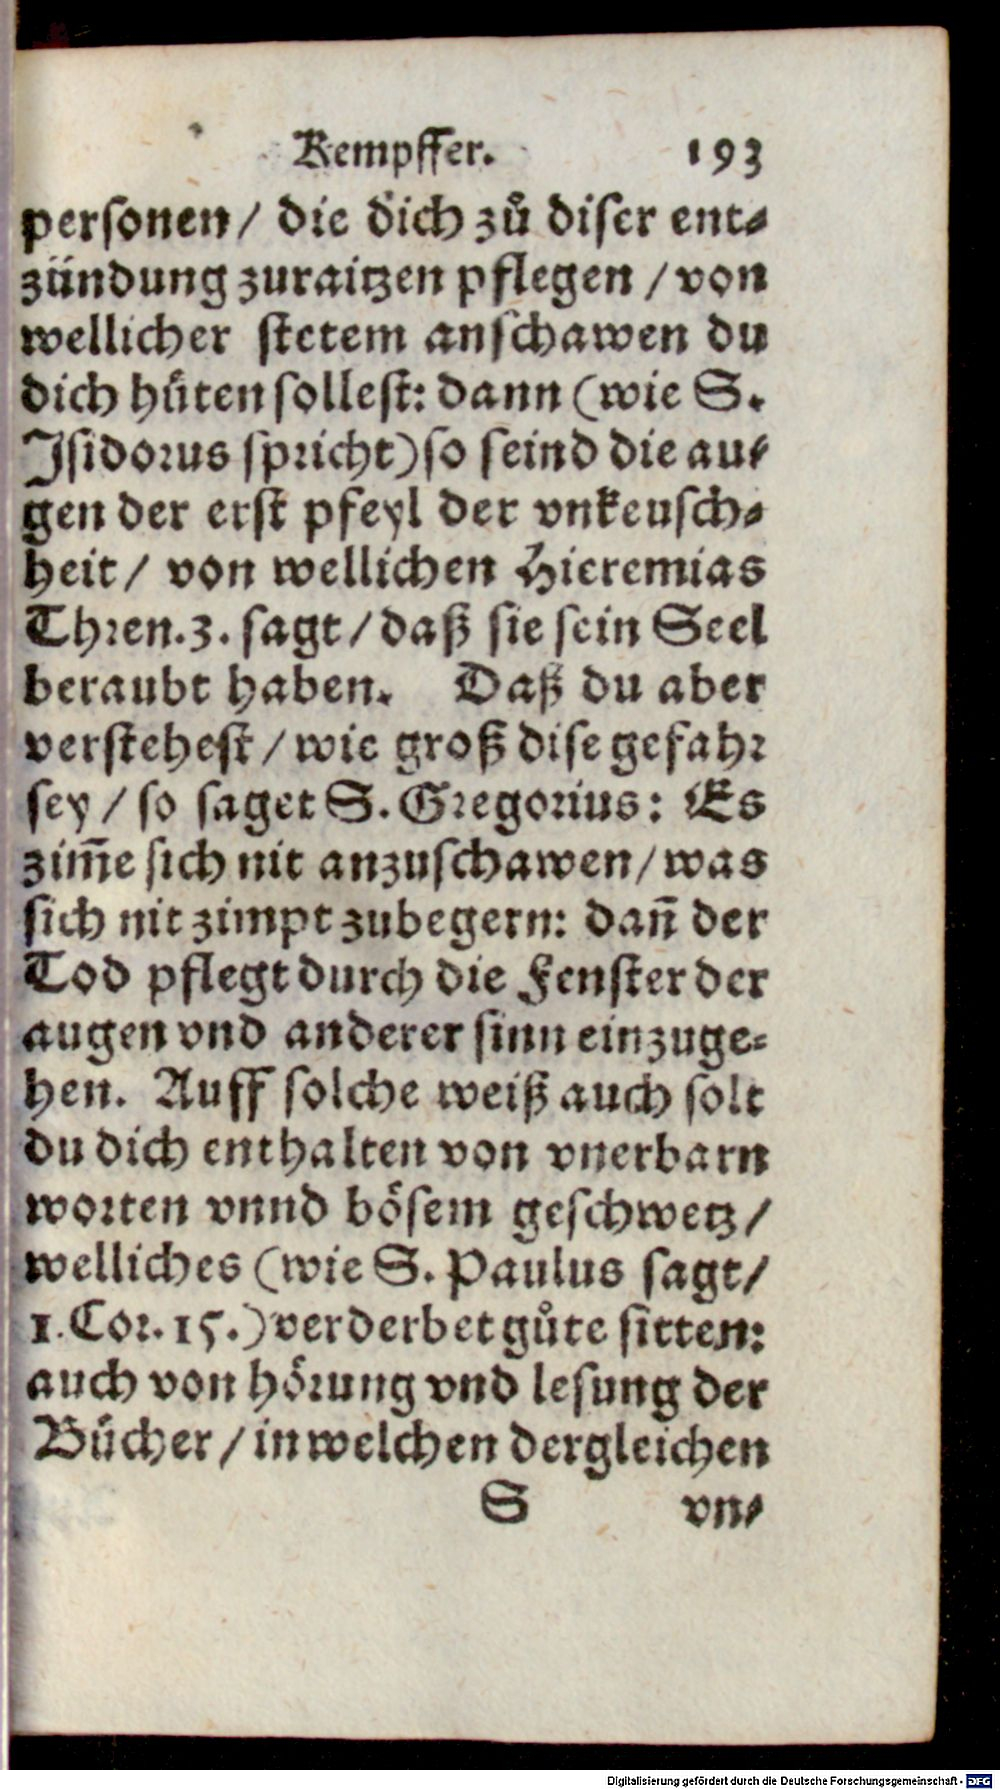 Kempffer. 193
personen / die dich zů diser ent⸗
zündung zuraitzen pflegen / von
wellicher stetem anschawen du
dich hüten sollest: dann (wie S.
Isidorus spricht) so seind die au⸗
gen der erst pfeyl der vnkeusch⸗
heit / von wellichen Hieremias
Thren. 3. sagt / daß sie sein Seel
beraubt haben. Daß du aber
verstehest / wie groß dise gefahr
sey / so saget S. Gregorius: Es
zim̄e sich nit anzuschawen / was
sich nit zimpt zubegern: dañ der
Tod pflegt durch die Fenster der
augen vnd anderer sinn einzuge⸗
hen. Auff solche weiß auch solt
du dich enthalten von vnerbarn
worten vnnd bösem geschwetz /
welliches (wie S. Paulus sagt /
1. Cor. 15.) verderbet gůte sitten:
auch von hörung vnd lesung der
Bücher / in welchen dergleichen
S vn⸗
Digitalisierung gefördert durch die Deutsche Forschungsgemeinschaft - DFG